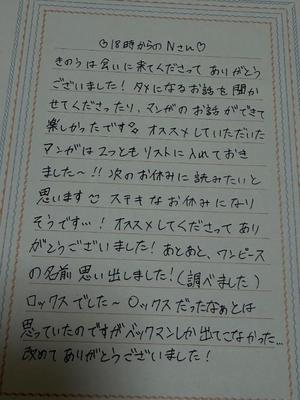 ♡18時からのNさん♡
きのうは会いに来てくださって ありがとう
ございました！タメになるお話を聞か
せてくださったり、マンガの お話ができて
楽しかったです。オススメしていただいた
マンガは2つとも リストに入れておき
ました〜!! 次のお休みに読みたいと
思います☺ ステキなお休みになり
そうです…！オススメしてくださって あり
がとうございました！あとあと、ワンピース
の名前 思い出しました！(調べました)
ロックスでした〜 〇ックス だったなぁとは
思っていたのですがベックマンしか出てこなかった…
改めて ありがとうございました！